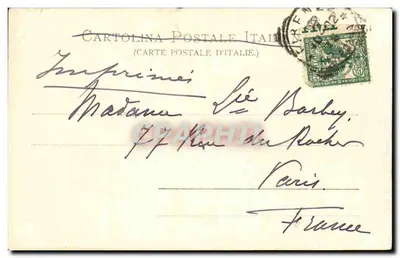 CARTOLINA POSTALE ITAL
(CARTE POSTALE D'ITALIE.)
Imprimés
Madame Barbey
77 Rue du Rocher
Paris
France